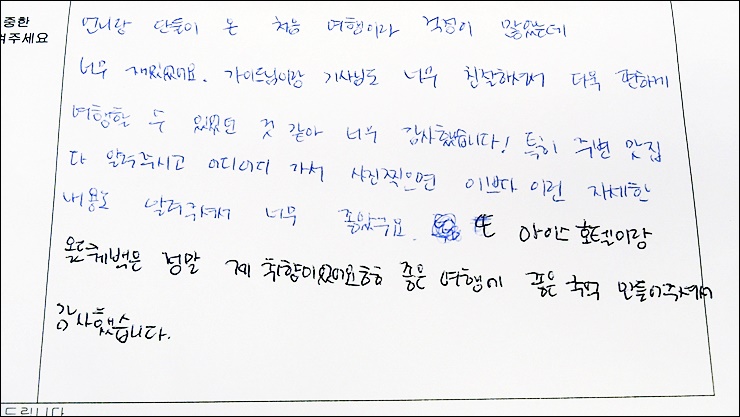 중한
겨주세요
언니랑 단둘이 온 처음 여행이라 걱정이 많았는데
너무 재밌었어요. 가이드님이랑 기사님도 너무 친절하셔서 더욱 편하게
여행할 수 있었던 것 같아 너무 감사했습니다! 특히 주변 맛집
다 알려주시고 어디어디 가서 사진찍으면 이쁘다 이런 자세한
내용도 알려주셔서 너무 좋았구요. 또 아이스 호텔이랑
올드퀘벡은 정말 제 취향이었어요ㅎㅎ 좋은 여행에 좋은 추억 만들어주셔서
감사했습니다.
드립니다